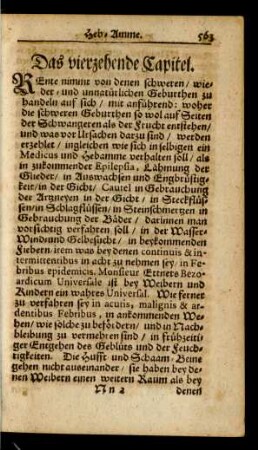 Heb-Amme. 563
Das vierzehende Capitel.
REnte nimmt von denen schweren / wie-
der- und unnatürlichen Geburthen zu
handeln auf sich / mit anführend: woher
die schweren Geburthen so wol auf Seiten
der Schwangeren als der Frucht entstehen /
und was vor Ursachen darzu sind / werden
erzehlet / ingleichen wie sich in selbigen ein
Medicus und Hebamme verhalten soll / als
in zukommender Epilepsia, Lähmung der
Glieder / in Auswachsen und Engbrüstig-
keit / in der Gicht / Cautel in Gebrauchung
der Artzneyen in der Gicht / in Steckflüs-
sen / in Schlagflüssen / in Steinschmertzen in
Gebrauchung der Bäder / darinnen man
vorsichtig verfahren soll / in der Wasser-
Wind und Gelbesucht / in beykommenden
Fiebern irem was bey denen continuis & in-
termittentibus in acht zu nehmen sey / in Fe-
bribus epidemicis. Monsieur Ettners Bezo-
ardicum Universale ist bey Weibern und
Kindern ein wahres Universal. Wie ferner
zu verfahren sey in acutis, malignis & ar-
dentibus Febribus, in ankommenden We-
hen / wie solche zu befördern / und in Nach-
bleibung zu vermehren sind / in frühzeiti-
ger Entgehen des Geblüts und der Feuch-
tigkeiten. Die Hüfft- und Schaam-Beine
gehen nicht auseinander / sie haben bey de-
nen Weibern einen weitern Raum als bey
Nn 2 denen